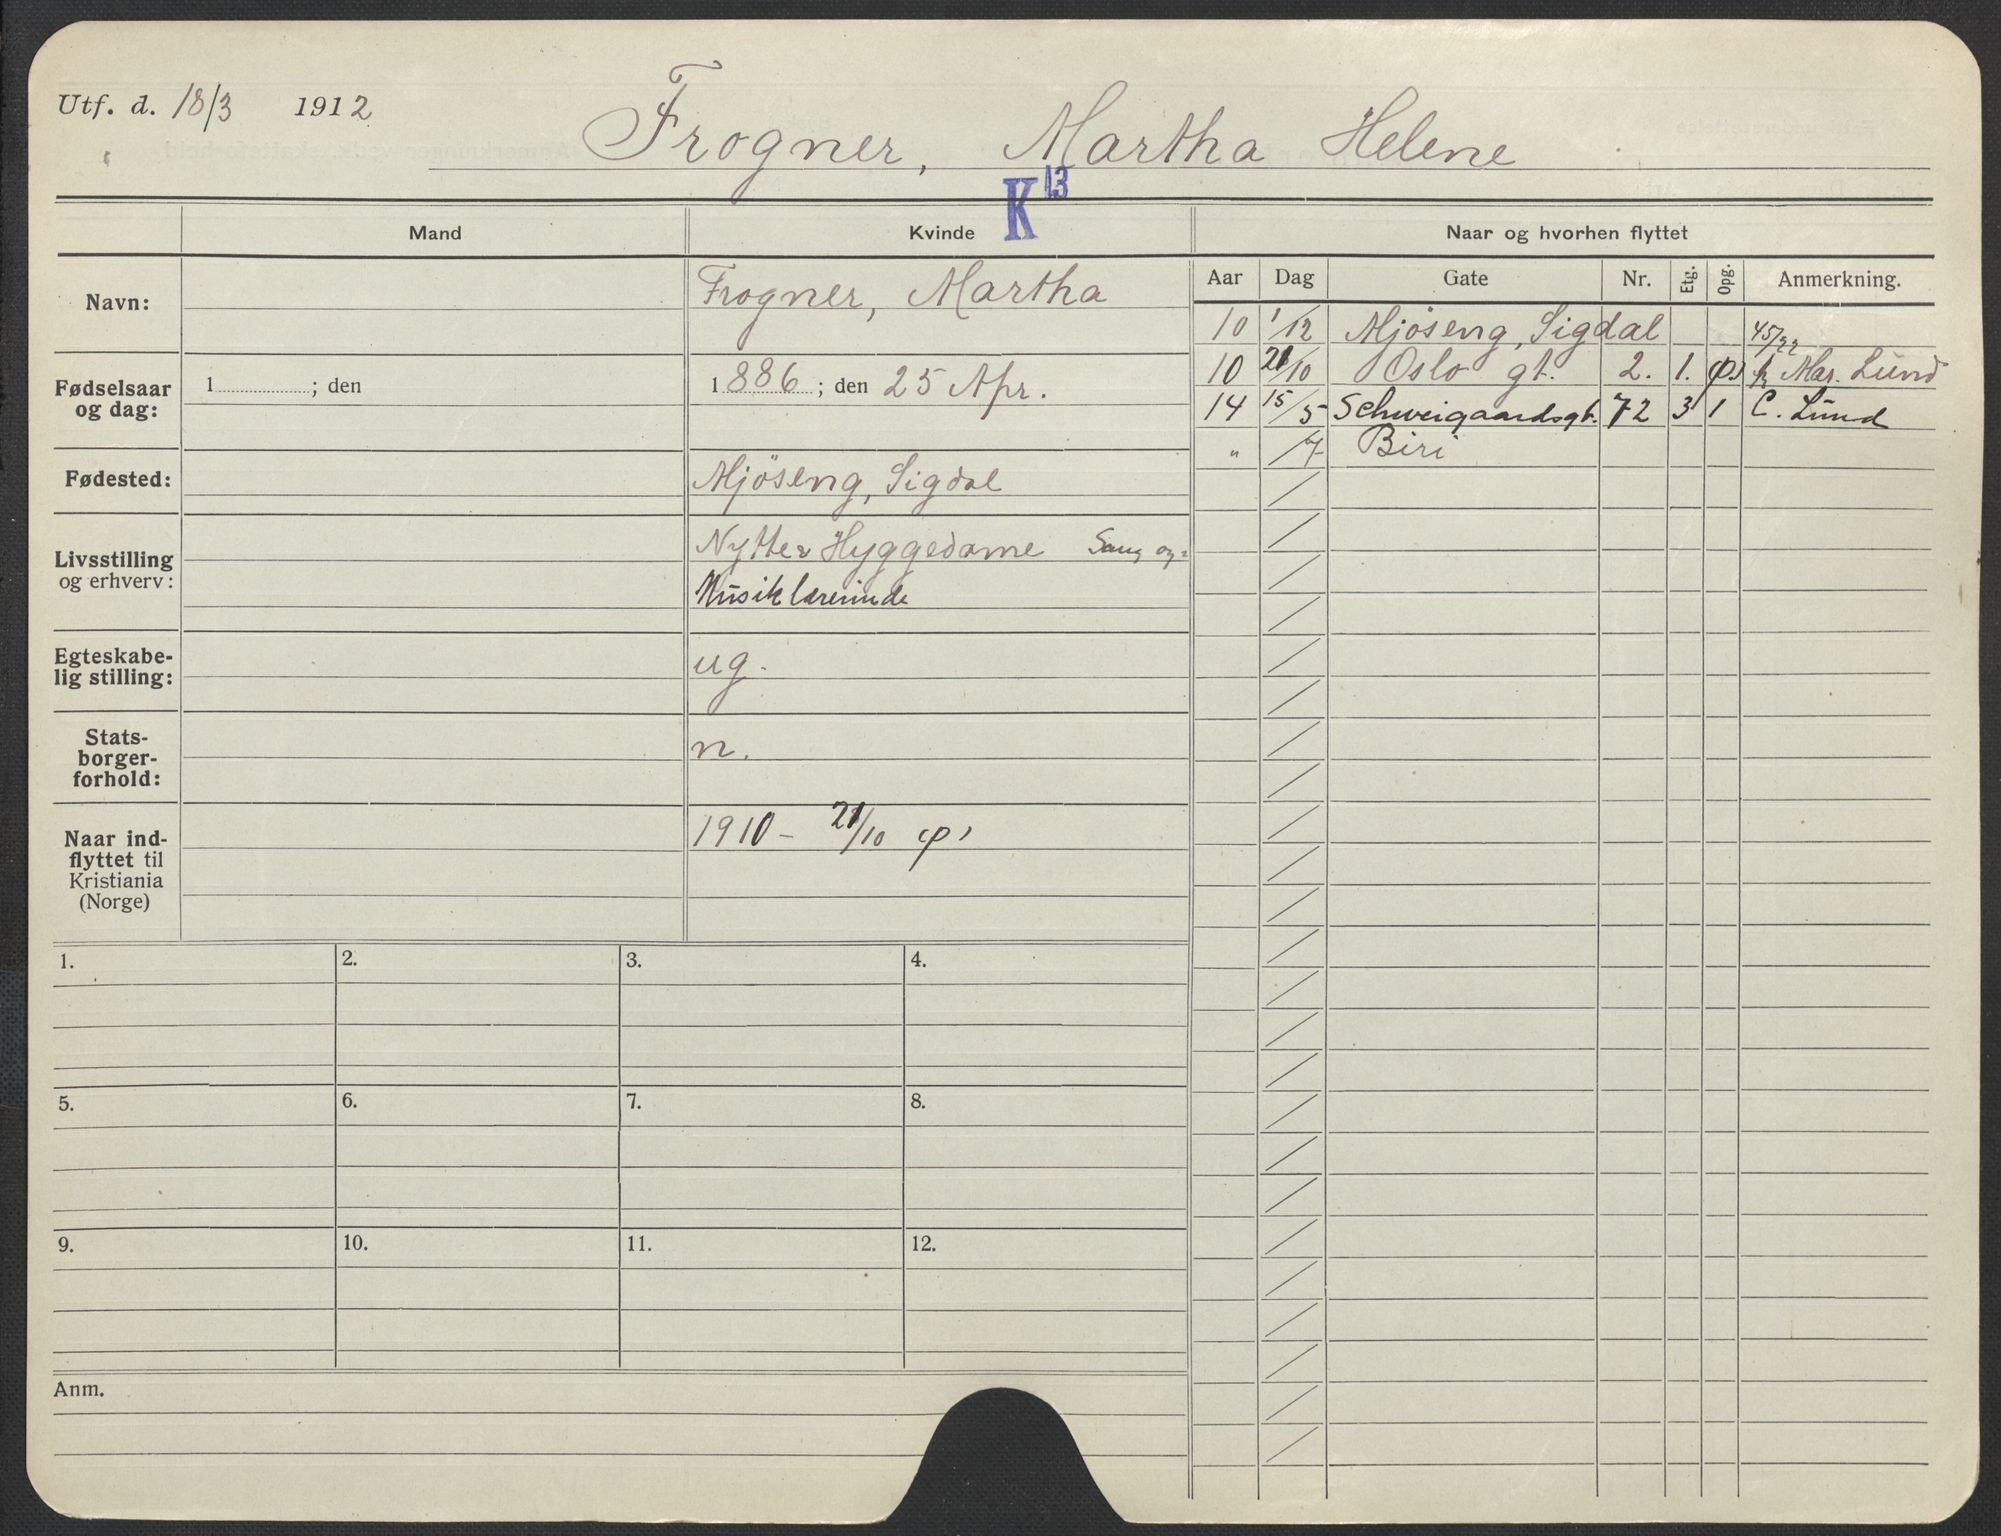 Utf. d. 18/3 1912
Frogner, Martha Helene
K 13
Mand Kvinde Naar og hvorhen flyttet
Navn: Frogner, Martha
Fødselsaar og dag: 1 ; den 1886 ; den 25 Apr.
Fødested: Mjöseng, Sigdal
Livsstilling og erhverv: Nytte & Hyggedame Sang og=
Musiklærerinde
Egteskabe-
lig stilling: ug.
Stats-
borger-
forhold: n.
Naar ind-
flyttet til
Kristiania
(Norge) 1910 – 21/10
Aar Dag Gate Nr. Etg. Opg. Anmerkning.
10 1/12 Mjöseng, Sigdal 45/22
10 21/10 Oslo gt. 2. 1. Mar. Lund
14 15/5 Schweigaardsgt. 72 3 1 C. Lund
" /7 Biri
1. 2. 3. 4.
5. 6. 7. 8.
9. 10. 11. 12.
Anm.